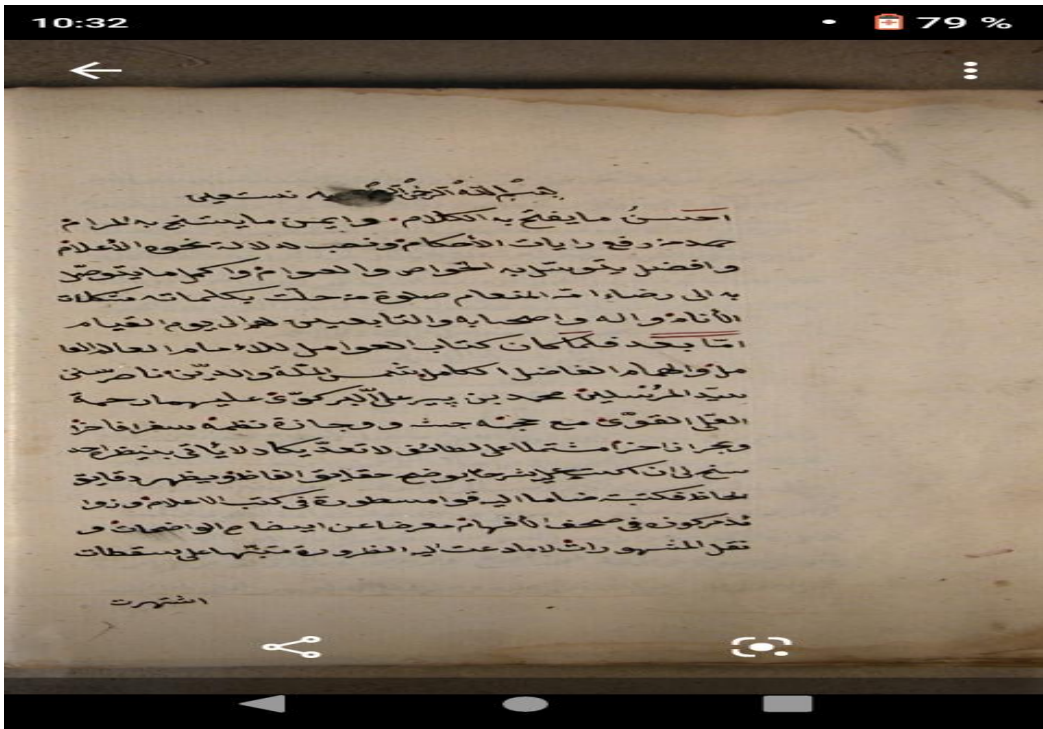 10:32
79 %
بسم الله الرحمن به نستعين
احسن ما يفتح به الكلام وايمن ما يستنجح به المرام
حمد من رفع رايات الأحكام ونصب لدلالته نحوه الأعلام
وافضل ما يتوسل به الخواص والعوام واكمل ما يتوصل
به الى رضاء الله المنعام صلوة من حلت بكلماته مشكلات
الأنام واله واصحابه والتابعين لهم الى يوم القيام
امّا بعد فلما كان كتاب العوامل للامام العالم العا
مل والهمام الفاضل الكامل شمس الملة والدين ناصر سنن
سيد المرسلين محمد بن پير على البركوى عليهما رحمة
العلى القوى مع حجمه ووجازة نظمه سفرا فاخرا
وبحرا زاخرا مشتملا على لطائف لا تعد يكاد لا يأتى بنظيره احد
سنح لى ان اكتب عليه شرحا يوضح حقايق الفاظه ويظهر دقايق
الحاظه فكتبت ضاما اليه فوائد مسطورة فى كتب الاعلام وزوا
مذكورة فى صحف الأفهام معرضا عن ايضاح الواضحات و
نقل المشهورات الا ما دعت اليه الضرورة متنبها على سقطات
اشتهرت